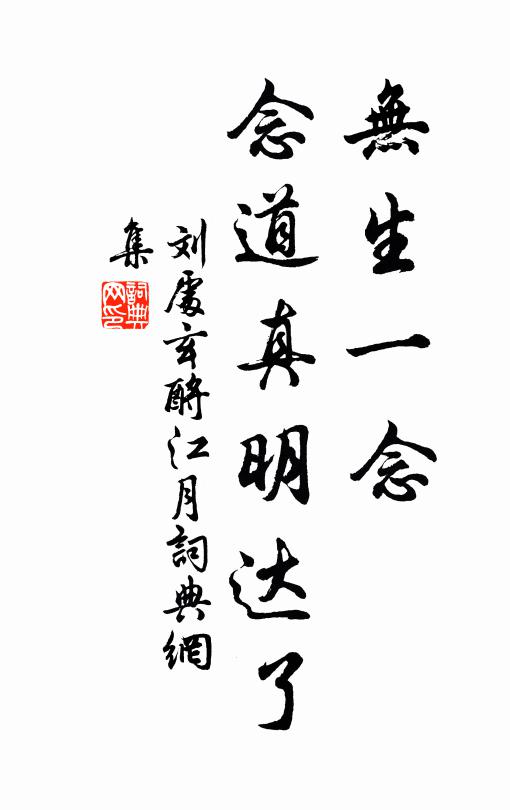 無生一念
念道真明达了
刘處玄酹江月詞典網
集
詞典网印